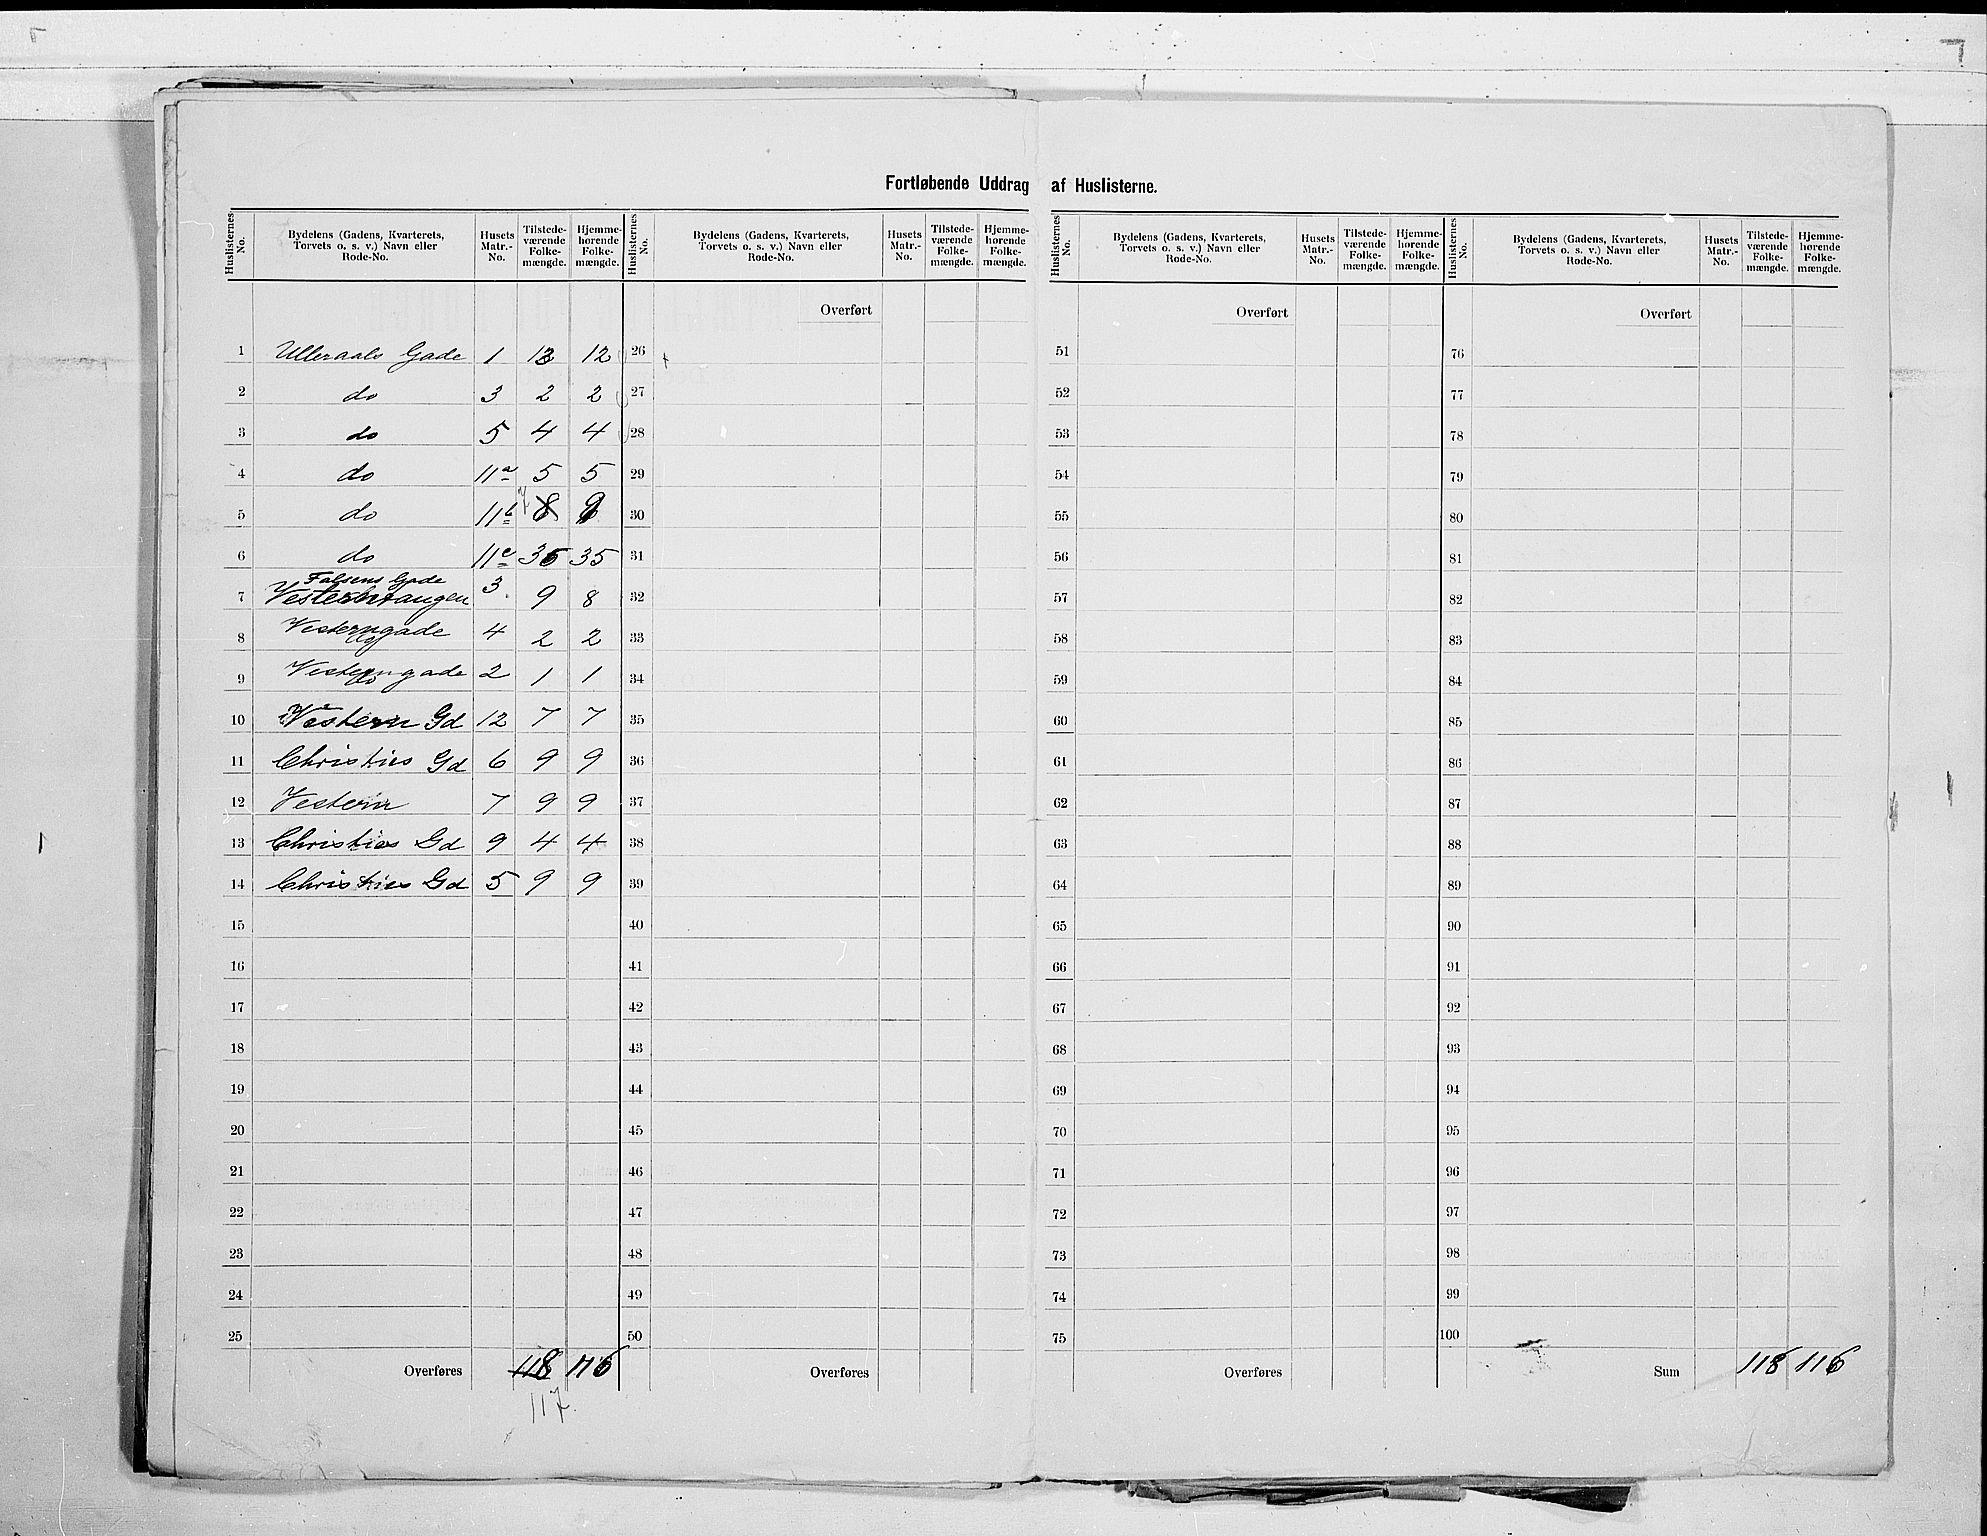 Fortløbende Uddrag af Huslisterne.
Huslisternes No. | Bydelens (Gadens, Kvarterets, Torvets o. s. v.) Navn eller Rode-No. | Husets Matr.-No. | Tilstedeværende Folkemængde. | Hjemmehørende Folkemængde. | Huslisternes No. | Bydelens (Gadens, Kvarterets, Torvets o. s. v.) Navn eller Rode-No. | Husets Matr.-No. | Tilstedeværende Folkemængde. | Hjemmehørende Folkemængde. | Huslisternes No. | Bydelens (Gadens, Kvarterets, Torvets o. s. v.) Navn eller Rode-No. | Husets Matr.-No. | Tilstedeværende Folkemængde. | Hjemmehørende Folkemængde. | Huslisternes No. | Bydelens (Gadens, Kvarterets, Torvets o. s. v.) Navn eller Rode-No. | Husets Matr.-No. | Tilstedeværende Folkemængde. | Hjemmehørende Folkemængde.
Overført Overført Overført
1 Ulleraals Gade 1 13 12 26 51 76
2 do 3 2 2 27 52 77
3 do 5 4 4 28 53 78
4 do 11a 5 5 29 54 79
5 do 11b 7 8 30 55 80
6 do 11c 35 35 31 56 81
Falsens Gade
7 Vesterntangen 3 9 8 32 57 82
8 Vesterngade 4 2 2 33 58 83
9 Vesterngade 2 1 1 34 59 84
10 Vestern Gd 12 7 7 35 60 85
11 Christies Gd 6 9 9 36 61 86
12 Vestern 7 9 9 37 62 87
13 Christies Gd 9 4 4 38 63 88
14 Christies Gd 5 9 9 39 64 89
15 40 65 90
16 41 66 91
17 42 67 92
18 43 68 93
19 44 69 94
20 45 70 95
21 46 71 96
22 47 72 97
23 48 73 98
24 49 74 99
25 50 75 100
Overføres 118 116 Overføres Overføres Sum 118 116
117.